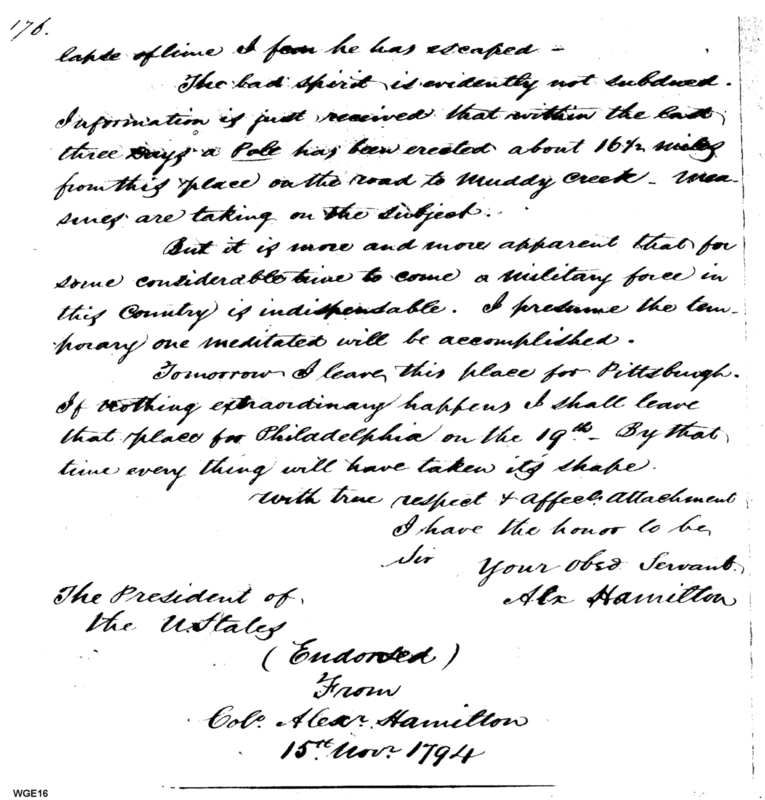 176.
lapse of time I fear he has escaped –
The bad spirit is evidently not subdued.
Information is just received that within the last
three Days a Pole has been erected about 16½ miles
from this place on the road to Muddy Creek – Mea-
sures are taking on the subject.
But it is more and more apparent that for
some considerable time to come a military force in
this Country is indispensable. I presume the tem-
porary one meditated will be accomplished.
Tomorrow I leave this place for Pittsburgh.
If nothing extraordinary happens I shall leave
that place for Philadelphia on the 19th – By that
time every thing will have taken its shape.
With true respect & affect. attachment
I have the honor to be
Sir Your Obed Servant.
The President of Alx Hamilton
the U. States
(Endorsed)
From
Colo. Alexr. Hamilton
15th Novr. 1794
WGE16